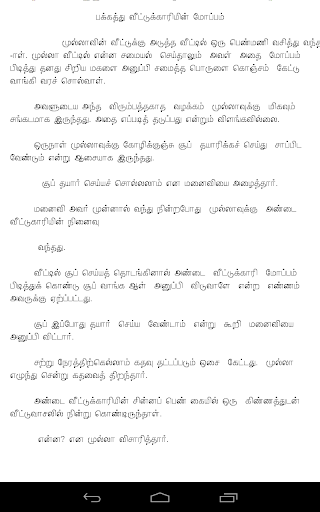 பக்கத்து வீட்டுக்காரியின் மோப்பம்
முல்லாவின் வீட்டுக்கு அடுத்த வீட்டில் ஒரு பெண்மணி வசித்து வந்த
-ாள். முல்லா வீட்டில் என்ன சமையல் செய்தாலும் அவள் அதை மோப்பம்
பிடித்து தனது சிறிய மகளை அனுப்பி சமைத்த பொருளை கொஞ்சம் கேட்டு
வாங்கி வரச் சொல்வாள்.
அவளுடைய அந்த விரும்பத்தகாத வழக்கம் முல்லாவுக்கு மிகவும்
சங்கடமாக இருந்தது. அதை எப்படித் தடுப்பது என்றும் விளங்கவில்லை.
ஒருநாள் முல்லாவுக்கு கோழிக்குஞ்சு சூப் தயாரிக்கச் செய்து சாப்பிட
வேண்டும் என்று ஆசையாக இருந்தது.
சூப் தயார் செய்யச் சொல்லலாம் என மனைவியை அழைத்தார்.
மனைவி அவர் முன்னால் வந்து நின்றபோது முல்லாவுக்கு அண்டை
வீட்டுகாரியின் நினைவு
வந்தது.
வீட்டில் சூப் செய்யத் தொடங்கினால் அண்டை வீட்டுக்காரி மோப்பம்
பிடித்துக் கொண்டு சூப் வாங்க ஆள் அனுப்பி விடுவாளே என்ற எண்ணம்
அவருக்கு ஏற்ப்பட்டது.
சூப் இப்போது தயார் செய்ய வேண்டாம் என்று கூறி மனைவியை
அனுப்பி விட்டார்.
சற்று நேரத்திற்கெல்லாம் கதவு தட்டப்படும் ஒசை கேட்டது. முல்லா
எழுந்து சென்று கதவைத் திறந்தார்.
அண்டை வீட்டுக்காரியின் சின்னப் பெண் கையில் ஒரு கிண்ணத்துடன்
வீட்டுவாசலில் நின்று கொண்டிருந்தாள்.
என்ன? என முல்லா விசாரித்தார்.